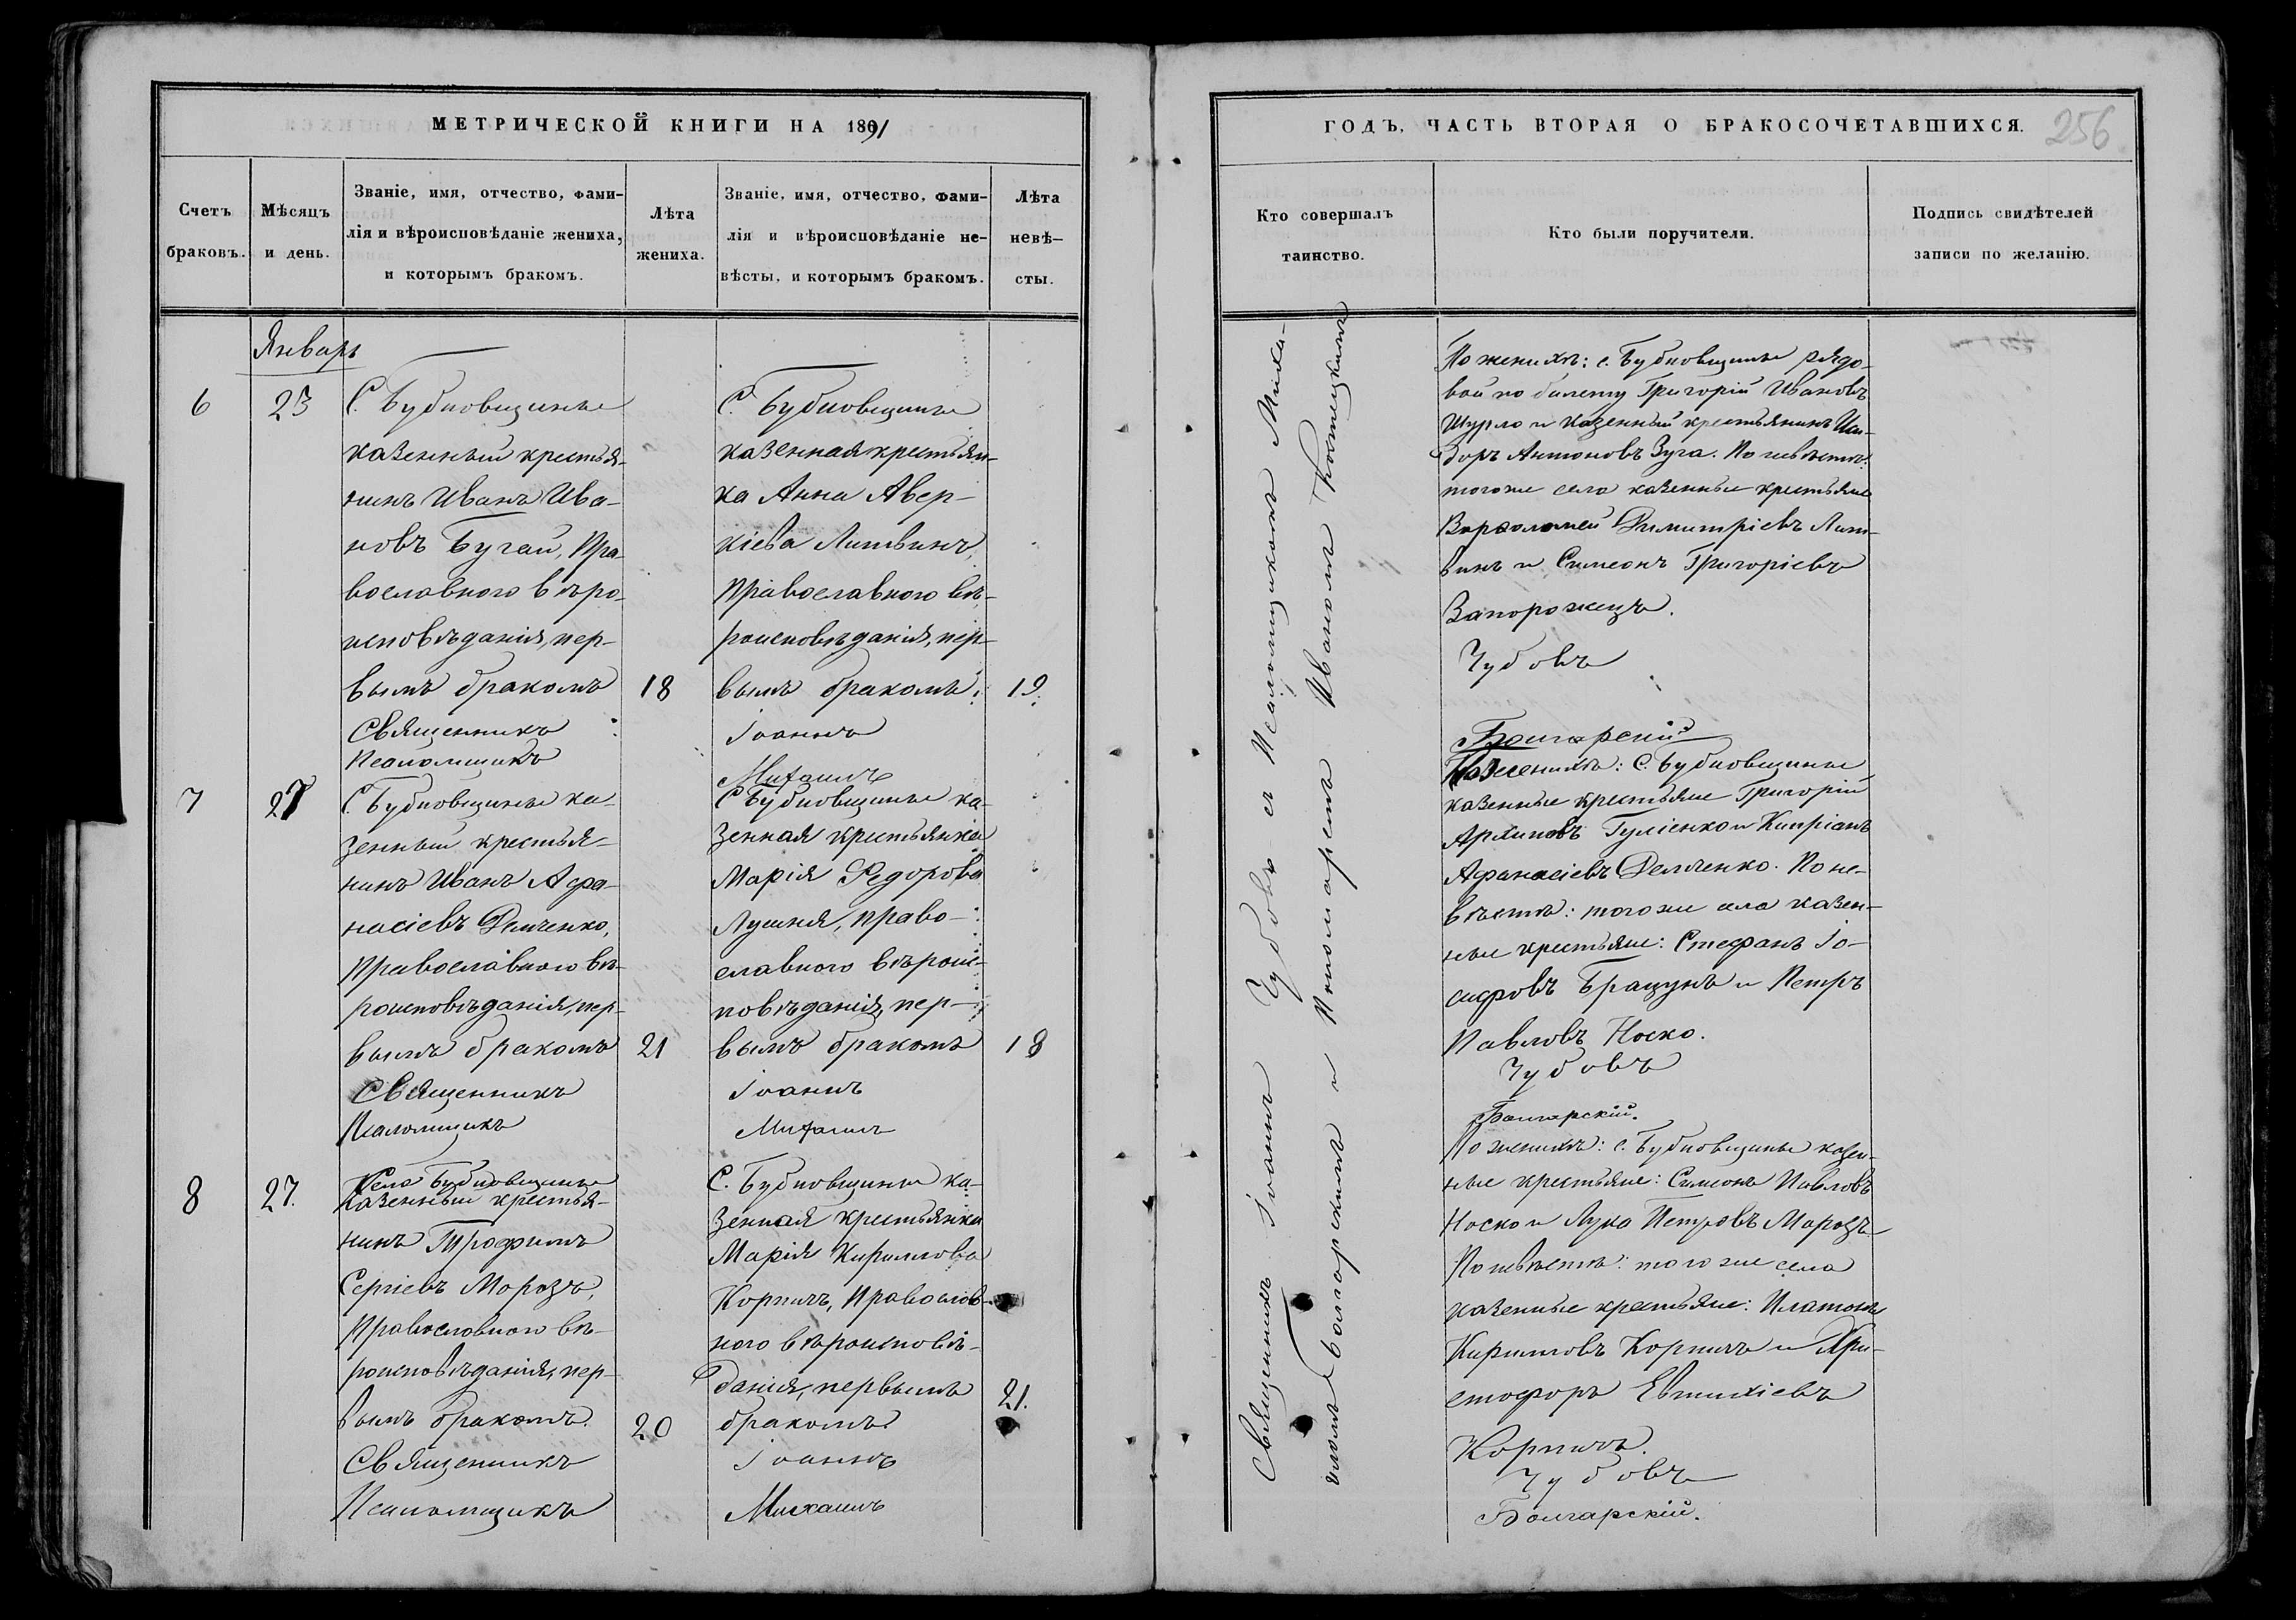 МЕТРИЧЕСКОЙ КНИГИ НА 1891
Счетъ браковъ.
Мѣсяцъ и день.
Званіе, имя, отчество, фами-
лія и вѣроисповѣданіе жениха,
и которымъ бракомъ.
Лѣта жениха.
Званіе, имя, отчество, фами-
лія и вѣроисповѣданіе не-
вѣсты, и которымъ бракомъ.
Лѣта
невѣ-
сты.
Январь
6
23
С. Бубновщины
казенный крестья-
нинъ Иванъ Ива-
новъ Бугай, Пра-
вославного вѣро-
исповѣданія, пер-
вымъ бракомъ
18
Священникъ
Псаломщикъ
С. Бубновщины
казенная крестьян-
ка Анна Авер-
кіева Литвинъ,
Православного вѣ-
роисповѣданія, пер-
вымъ бракомъ.
19.
Іоаннъ
Михаилъ
7
27
С. Бубновщины ка-
зенный крестья-
нинъ Иванъ Афа-
насіевъ Демченко,
Православного вѣ-
роисповѣданія, пер-
вымъ бракомъ
21
Священникъ
Псаломщикъ
С. Бубновщины ка-
зенная крестьянка
Марія Федорова
Лушня, право-
славного вѣроис-
повѣданія, пер-
вымъ бракомъ
18
Іоаннъ
Михаилъ
8
27.
Села Бубновщины
казенный крестья-
нинъ Трофимъ
Сергіевъ Морозъ,
Православного вѣ-
роисповѣданія, пер-
вымъ бракомъ.
20
Священникъ
Псаломщикъ
С. Бубновщины ка-
зенная крестьянка
Марія Кириллова
Корпичъ, Православ-
ного вѣроисповѣ-
данія, первымъ
бракомъ
21.
Іоаннъ
Михаилъ
ГОДЪ, ЧАСТЬ ВТОРАЯ О БРАКОСОЧЕТАВШИХСЯ.
256
Кто совершалъ
таинство.
Кто были поручители.
Подпись свидѣтелей
записи по желанію.
Священникъ Іоаннъ Чубовъ съ Псаломщикомъ Миха-
иломъ Болгарскимъ и Пономаремъ Иваномъ
По женихѣ: с. Бубновщины рядо-
вой по билету Григорій Ивановъ
Шурло и казенный крестьянинъ Иси-
доръ Антоновъ Зуга. По невѣстѣ:
того же села казенные крестьяне
Варфоломей Димитріевъ Лит-
винъ и Симеонъ Григоріевъ
Запорожецъ.
Чубовъ
Болгарскій
По женихѣ: С. Бубновщины
казенные крестьяне Григорій
Архиповъ Гуліенко и Кипріанъ
Афанасіевъ Демченко. По не-
вѣстѣ: того же села казен-
ные крестьяне: Стефанъ Іо-
сифовъ Брацунъ и Петръ
Павловъ Носко.
Чубовъ
Болгарскій.
По женихѣ: с. Бубновщины казен-
ные крестьяне: Симеонъ Павловъ
Носко и Лука Петровъ Морозъ
По невѣстѣ: того же села
казенные крестьяне: Платонъ
Кирилловъ Корпичъ и Хри-
стофоръ Евтихіевъ
Корпичъ.
Чубовъ
Болгарскій.